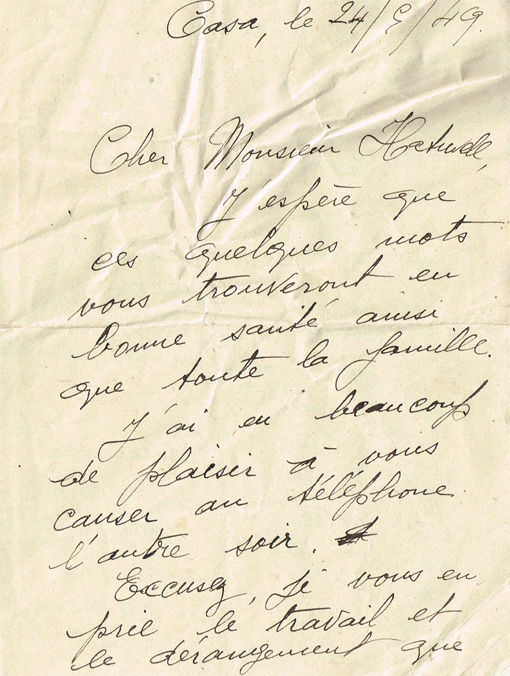 Casa, le 24/5/49.
Cher Monsieur Hatwell,
J'espère que
ces quelques mots
vous trouveront en
bonne santé ainsi
que toute la famille.
J'ai eu beaucoup
de plaisir à vous
causer au téléphone
l'autre soir.
Excusez, je vous en
prie le travail et
le dérangement que